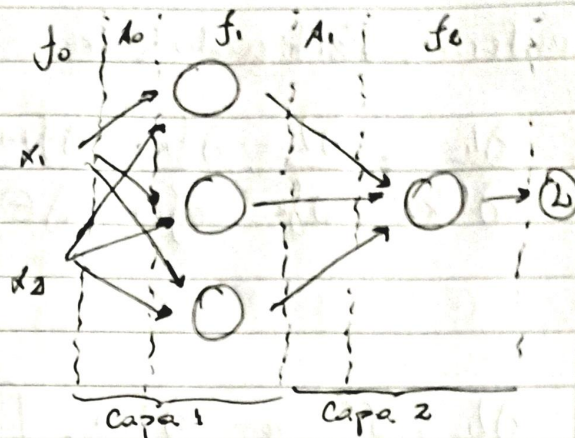 f₀ A₀ f₁ A₁ f₂
x₁
L
x₂
Capa 1 Capa 2